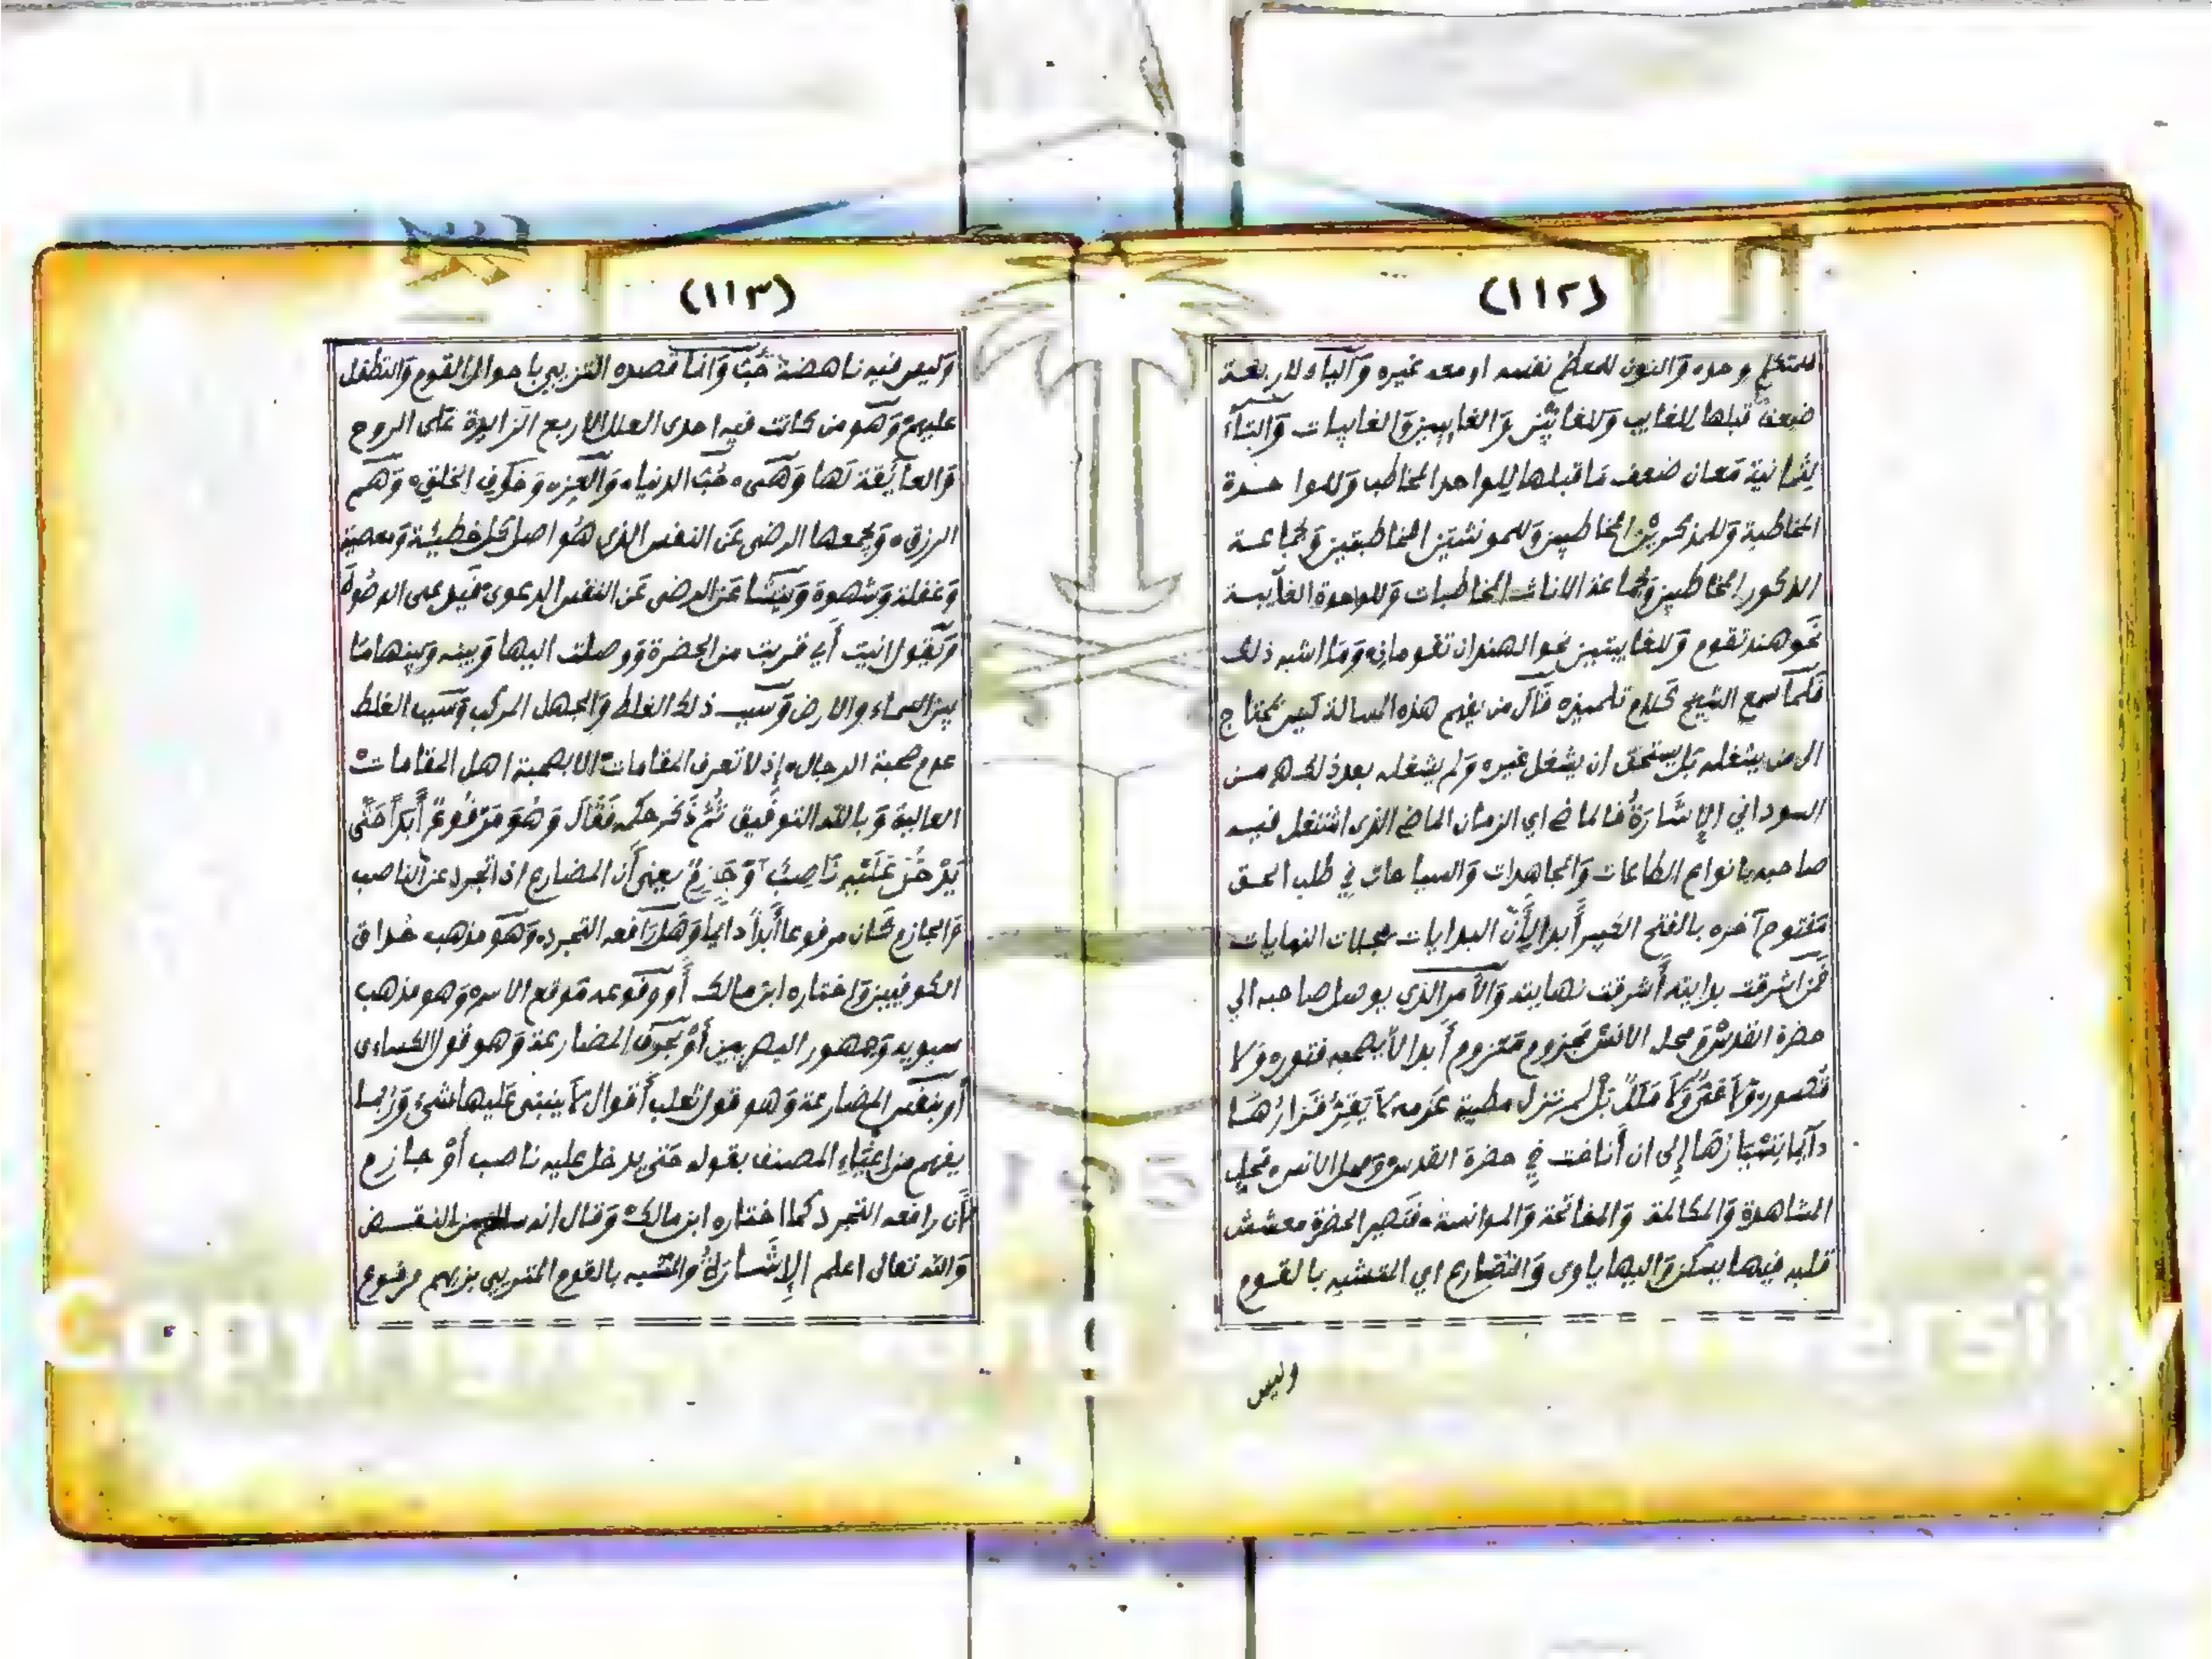 (١١٢)
للمتكلم وحده وَالنون للمعظم نفسه او معه غيره وَالياء لاربعة
ضعفه قبلها للغايب وَللغايبَين وَالغايبين وَالغايبات وَالتاء
لثمانية مَعان ضعف مَا قبلها للواحد المخاطب وَللواحدة
المخاطبة وَللمذكرين المخاطبين وَللمونثتين المخاطبتين وَلجماعة
الذكور المخاطبين وَلجماعة الاناث المخاطبات وَللواحدة الغايبة
نحو هند تقوم وَللغايبتين نحو الهندان تقومان وَمَا اشبه ذلك
فَلما سمع الشيخ كَلام تلميذه قَال من يفهم هذه المسالة لَيس يحتاج
الى من يشغله بَل يستحق ان يشغل غيره وَلم يشغله بعد ذلك من
السوداني الإِشَارَةُ فالماضي اي الزمان الماضي الذي اشتغل فيه
صاحبه بانواع الطاعات وَالمجاهدات وَالسياحات في طلب الحق
مَفتوح آخره بالفتح الكبير أَبدا لأَنّ البدايات مجلات النهايات
فَمن اشرقت بدايته أَشرقت نهايته وَالأَمر الذي يوصل صاحبه الي
حضرة القدس وَمحل الانس مَجزوم مَعزوم أَبدا لا يصحبه فتور وَلا
قصور وَلا وَلا مَلَلٌ بَلْ لم تنزل مطية عَزمه لا يَقِرُّ قَرَارُهَا
دَايما إِلى ان أَناخت في حضرة القدس وَمحل الانس محل
المشاهدة وَالمكالمة وَالمفاتحة وَالموانسة فَتصير الحضرة معشش
قلبه فيها يسكن وَاليها ياوى وَالمضارع اي المتشبه بالقوم
وليس
(١١٣)
وَليس فيه ناهضة حُبّ وَانما قصده التزيي باحوال القوم وَالتطفل
عليهم وَهو من كانت فيه احدى العلل الاربع الزايدة عَلى الروح
وَالعَايقة لَها وَهى حُبّ الدنيا وَالعِز وَخوف الخلق وَهَم
الرزق وَيجمعها الرضى عَن النفس الذي هُو اصل كل خطيئة وَمعصية
وَغفلة وَشهوة وَينشا عَن الرضى عَن النفس الدعوى فَيدعى الوصُول
وَيَقول انيت أَي قربت من الحضرة وَوصلت اليها وَبينه وَبينها مَا
بين السماء والارض وَسبب ذلك الغلط وَالجهل المركب وَسبب الغلط
عدم صحبة الرجال إِذ لا تعرف المقامات الا بصحبة اهل المقامات
العالية وَبالله التوفيق ثُمَّ ذَكر حكمه فَقَالَ وَهُوَ مَرْفُوعٌ أَبَداً حَتَّى
يَدْخُلَ عَلَيْهِ نَاصِبٌ أَوْ جَازِمٌ يعنى أَن المضارع اذا تجرد عن الناصب
وَالجازم كَان مرفوعا أَبداً دايما وَهَل رَافعه التجرد وَهو مذهب حذاق
الكوفيين وَاختاره ابن مالك أَو وقوعه مَوقع الاسم وَهو مذهب
سيبويه وَجمهور البصريين أَوْ بحروف المضارعة وَهو قول الكساءى
أَو بنفس المضارعة وَهو قول ثعلب أَقوال لا ينبنى عَليها شئ وَربما
يفهم من المصنف بقوله حَتى يدخل عليه ناصب أَوْ جازم
أَن رافعه التجرد كما اختاره ابن مالك وَقال انه من النقض
وَالله تعالى اعلم الإِشَارَةُ وَالمتشبه بالقوم المتزيي بزيهم مرفوع